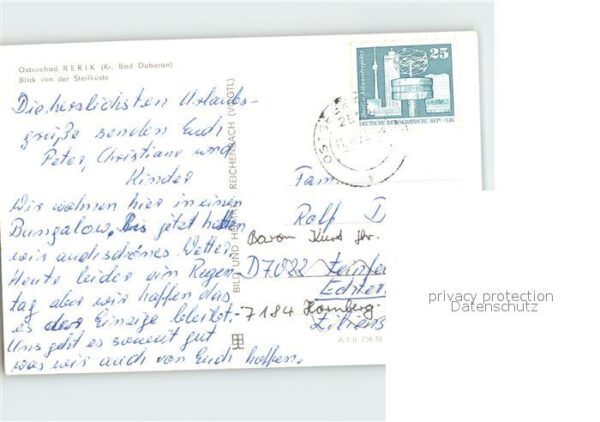 Ostseebad RERIK (Kr. Bad Doberan)
Blick von der Steilküste
Die herzlichsten Urlaubs-
grüße senden Euch
Peter, Christiane und
Kinder
Wir wohnen hier in einen
Bungalow, bis jetzt hatten
wir auch schönes Wetter
Heute leider ein Regen
tag aber wir hoffen das
es der Einzige bleibt.
Uns geht es soweit gut
was wir auch von Euch hoffen.
BILD UND HEIMAT REICHENBACH (VOGTL)
25
DEUTSCHE DEMOKRATISCHE REPUBLIK
OSTSEEBAD
Fam
Rolf
Baron Kurt Str.
D7022
Echter
7184 Homberg
A 1/B 726/76
privacy protection
Datenschutz